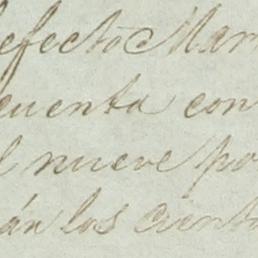 efecto Mar
cuenta con
l nueve po
án los cient